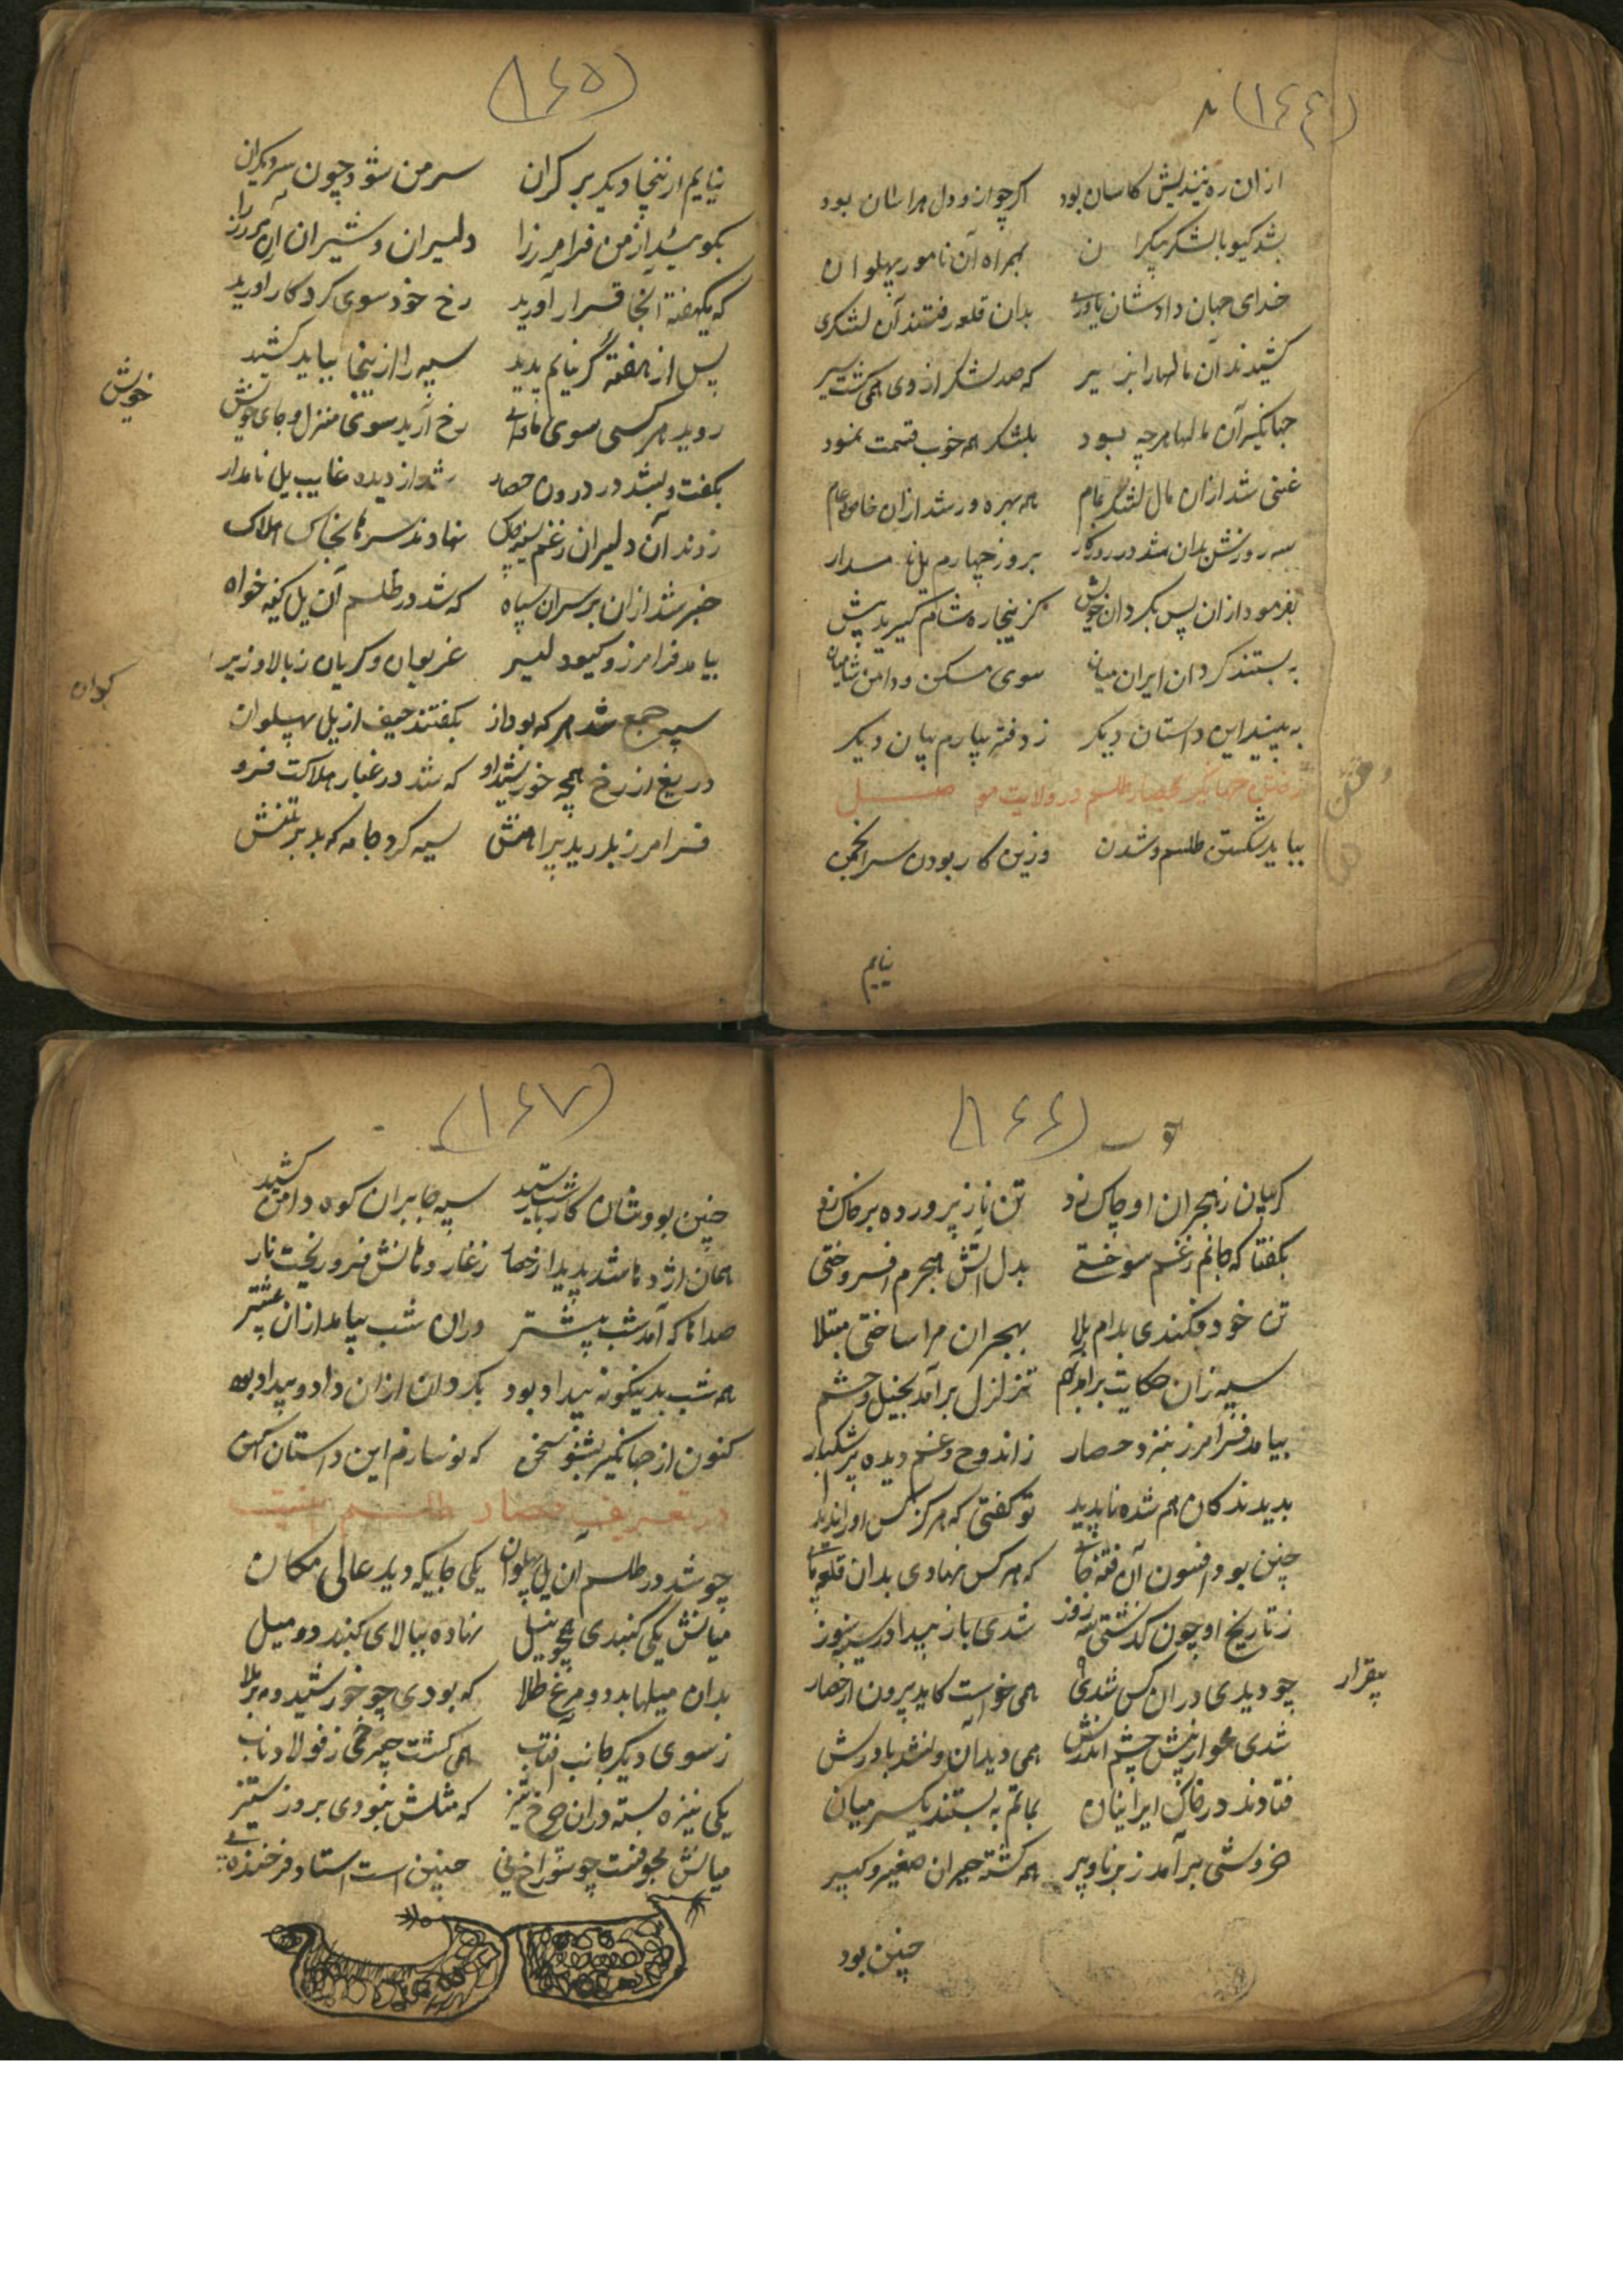 (۱۶۴)
ازان ره نیندیش کاسان بود اکرچه ازو دل هراسان بود
بشد کیو با لشکر بیکران بهمراه آن نامور پهلوان
خدای جهان دادشان یاوری بدان قلعه رفتند آن لشکری
کشیدند آن مالها را بزیر که صد لشکر از وی همی کشت سیر
جهانکیر آن مالها هرچه بود بلشکر همه خوب قسمت نمود
غنی شد ازان مال لشکر تمام همه بهره ور شد ازان خاص و عام
سه روزش بدان شد در روزکار بروز چهارم یل نامدار
بفرمود ازان پس بکردان خویش کزینجا ره شام کیرید پیش
به بستند کردان ایران میان سوی مسکن و دامن شامیان
به بینید این داستان دیکر ز دفتر بیارم بیان دیکر
رفتن جهانکیر بحصار طلسم در ولایت موصل
رفتن
بباید شکستن طلسم و شدن وزین کار بودن سر انجمن
نیایم
(۱۶۵)
نیایم ازینجا دیکر بر کران سر من شود چون سر دیکران
بکویید از من فرامرز را دلیران و شیران آن مرز را
که یکهفته آنجا قرار آورید رخ خود سوی کردکار آورید
پس از هفته گر نیایم پدید سپه را ازینجا بباید کشید
روید هر کسی سوی ماوای خویش رخ آرید سوی منزل و جای خویش
خویش
بکفت و بشد در درون حصار شد از دیده غایب یل نامدار
زدند آن دلیران ز غم سینه چاک نهادند سرها بخاک هلاک
خبر شد ازان بر سران سپاه که شد در طلسم آن یل کینه خواه
بیامد فرامرز و کیو دلیر غریوان و کریان ز بالا و زیر
سپه جمع شد هر که بود از کوان بکفتند حیف از یل پهلوان
کوان
دریغ از رخ همچه خورشید او که شد در غبار هلاکت فرو
فرامرز بدرید پیراهنش سیه کرد جامه که بد بر تنش
(۱۶۶)
کریبان ز هجران او چاک زد تن ناز پرورده بر خاک زد
بکفتا که جانم ز غم سوختی بدل آتش هجرم افروختی
تن خود فکندی بدام بلا بهجران مرا ساختی مبتلا
سپه زان حکایت برآمد بهم تزلزل برآمد بخیل و حشم
بیامد فرامرز نزد حصار ز اندوه و غم دیده پر اشکبار
بدیدند کان هم شده ناپدید تو کفتی که هرکز کس او را ندید
چنین بود افسون آن فتنه جای که هر کس نهادی بدان قلعه پای
ز تاریخ او چون کذشتی سه روز شدی باز پیدا در سینه سوز
چو دیدی دران کس شدی بیقرار همی خواست کاید برون از حصار
بیقرار
شدی محو از پیش چشم اندرش همی دید آن و نشد باورش
فتادند در خاک ایرانیان بماتم به بستند یکسر میان
خروشی برآمد ز برنا و پیر همه کشته حیران صغیر و کبیر
چنین بود
(۱۶۷)
چنین بودشان کار تا شب رسید سپه جا بران کوه دامن کشید
همان اژدها شد پدید از حصار ز غار دهانش فرو ریخت نار
صداها که آمد شب پیشتر دران شب بیامد ازان بیشتر
همه شب بدینکونه بیداد بود بکردان ازان داد و بیداد بود
کنون از جهانکیر بشنو سخن که نو سازم این داستان کهن
در تعریف حصار طلسم اینست
چو شد در طلسم آن یل پهلوان یکی جایکه دید عالی مکان
میانش یکی کنبدی همچو نیل نهاده ببالای کنبد دو میل
بدان میلها بد دو مرغ طلا که بودی چو خورشید و مه بر ملا
ز سوی دیکر جانب آفتاب همی کشت چرخی ز فولاد ناب
یکی نیزه بسته دران چرخ تیز که مثلش نبودی بروز ستیز
میانش مجوفست چو سوراخ نی چنین است استاد فرخنده پی